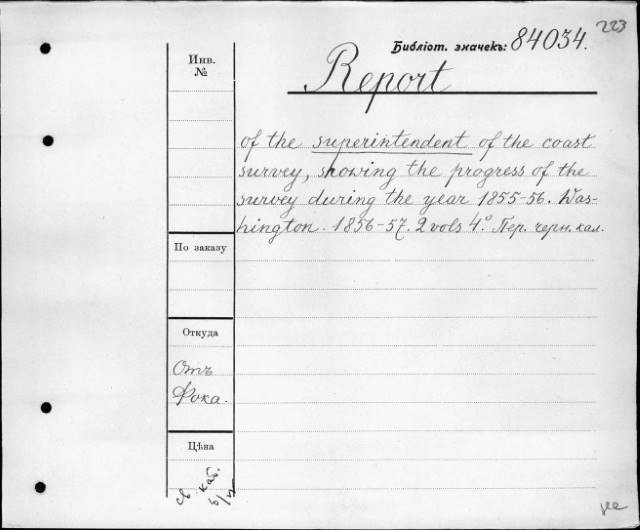 223
Библіот. значекъ: 84034.
Инв.
№
Report
of the superintendent of the coast
survey, showing the progress of the
survey during the year 1855-56. Was-
hington. 1856-57. 2 vols 4º Пер. черн. кал.
По заказу
Откуда
Отъ
Фока.
Цѣна
св. каб.